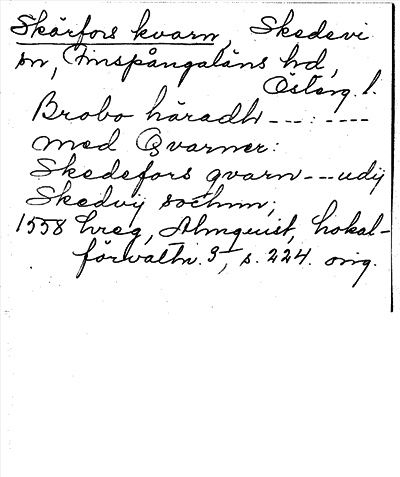 Skärfors kvarn, Skedevi
sn, Finspångaläns hd,
Österg. l.
Brobo häradh ---:----
med Qvarner:
Skedefors qvarn---udij
Skedvij sochnn;
1558 Lreg, Almquist, Lokal-
förvaltn. 3, s. 224. orig.